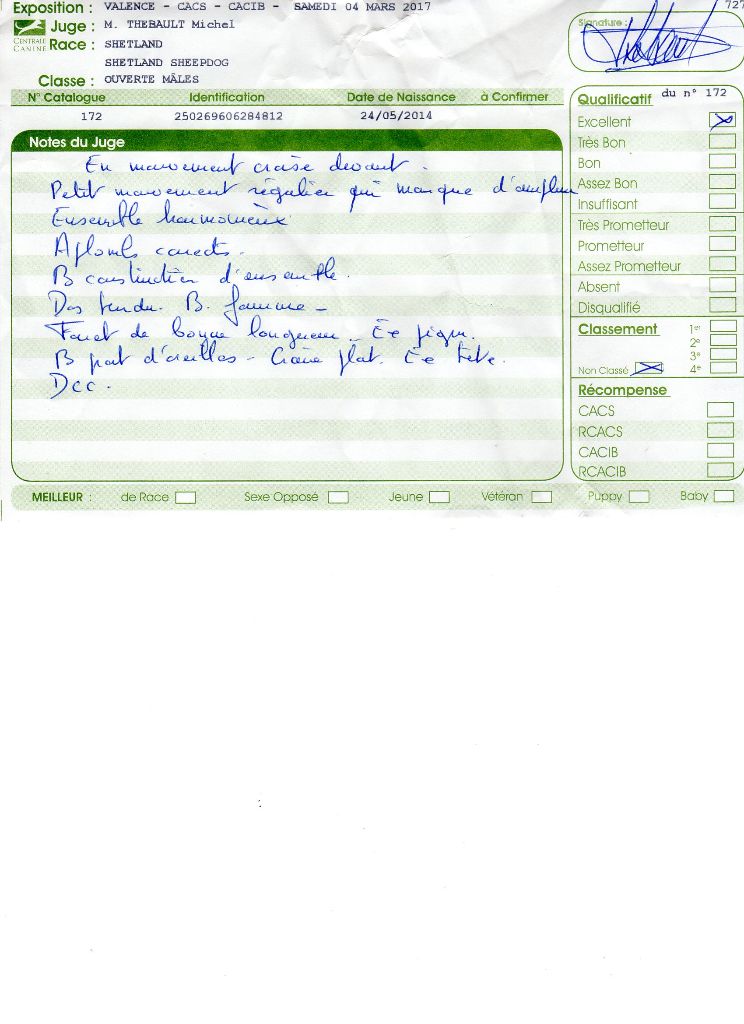 Exposition : VALENCE - CACS - CACIB - SAMEDI 04 MARS 2017
727
Juge : M. THEBAULT Michel
Signature :
CENTRALE CANINE
Race : SHETLAND
SHETLAND SHEEPDOG
Classe : OUVERTE MÂLES
N° Catalogue Identification Date de Naissance à Confirmer
172 250269606284812 24/05/2014
Notes du Juge
En mouvement croise devant.
Petit mouvement régulier qui manque d'ampleur
Ensemble harmonieux
Aplombs corrects.
B construction d'ensemble.
Dos tendu. B.
Fouet de bonne longueur
B port d'oreilles - Crâne plat. tête.
Dcc.
Qualificatif du n° 172
Excellent
Très Bon
Bon
Assez Bon
Insuffisant
Très Prometteur
Prometteur
Assez Prometteur
Absent
Disqualifié
Classement 1er
2e
3e
Non Classé 4e
Récompense
CACS
RCACS
CACIB
RCACIB
MEILLEUR : de Race Sexe Opposé Jeune Vétéran Puppy Baby